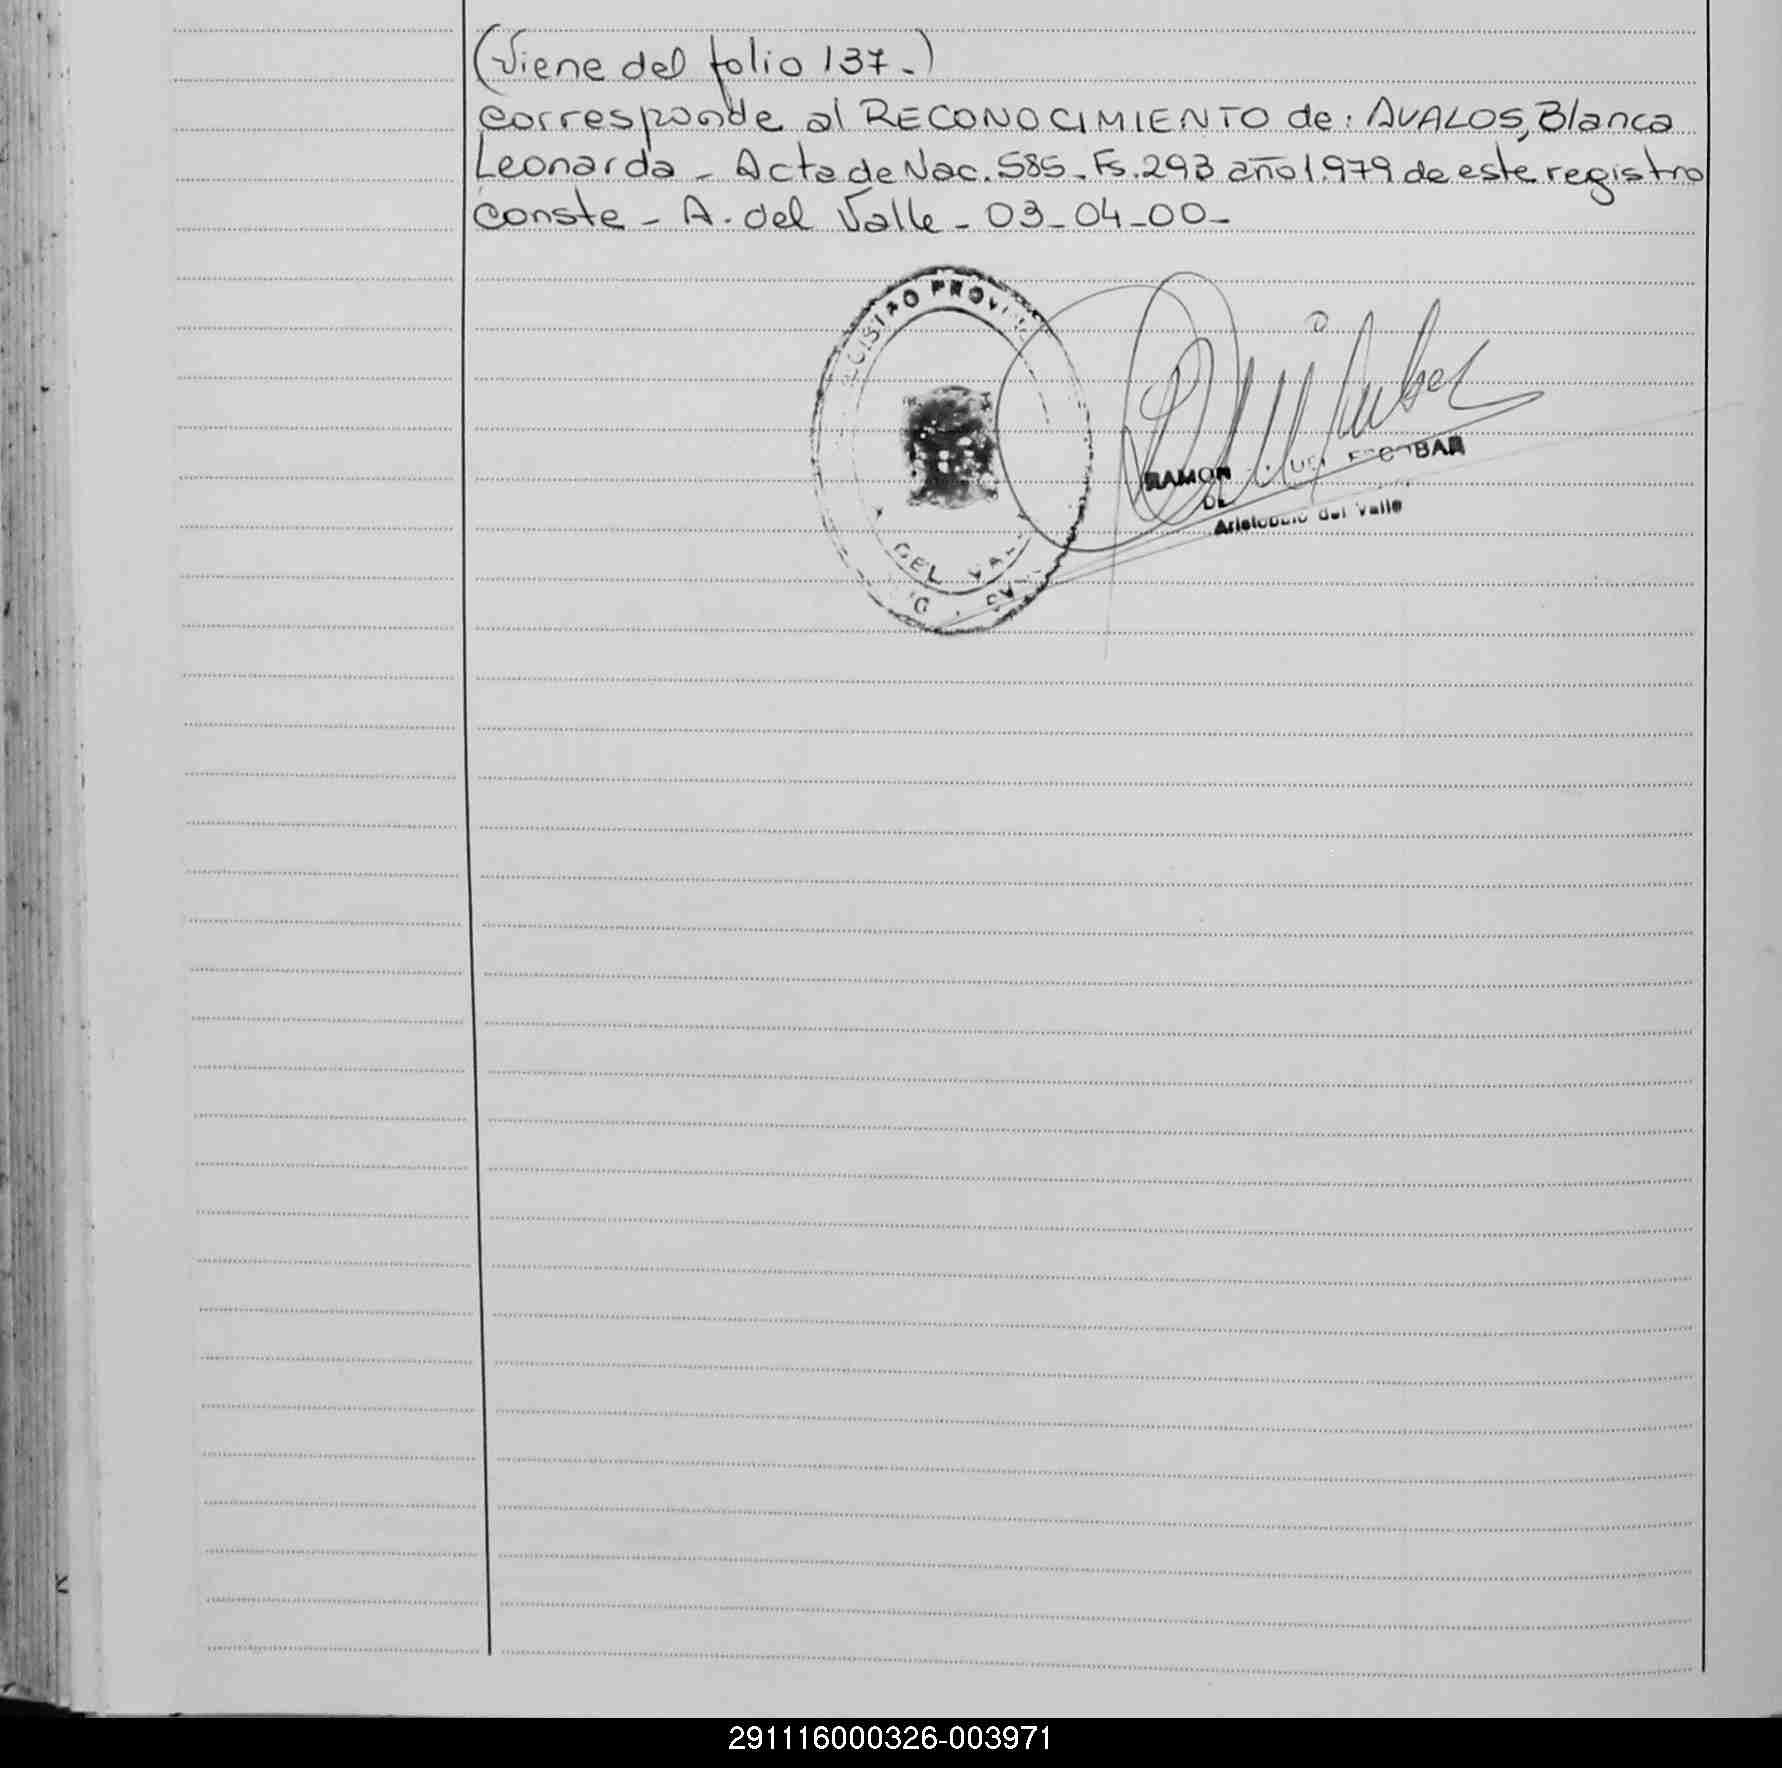 (Viene del folio 137.-)
corresponde al RECONOCIMIENTO de: AVALOS, Blanca
Leonarda - Acta de Nac. 585 - Fs. 293 año 1.979 de este registro
conste - A. del Valle - 03-04-00-
REGISTRO PROVIN
DEL VALLE
RAMON ESCOBAR
DE
Aristobulo del Valle
291116000326-003971